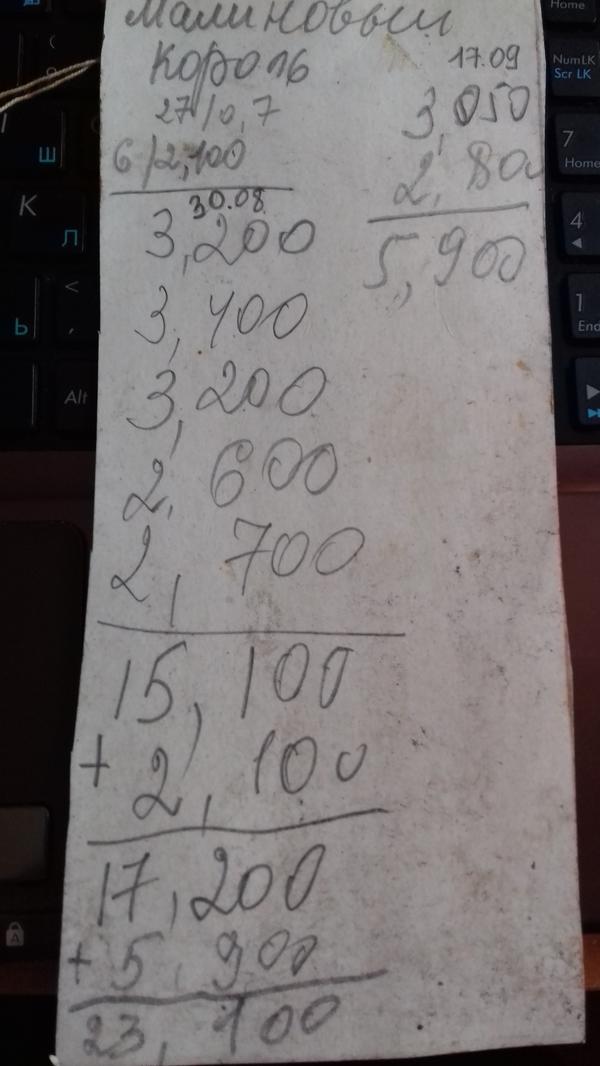 Малиновый
Король
27/0,7
6/2,100
30.08
3,200
3,400
3,200
2,600
2,700
15,100
+ 2,100
17,200
+ 5,900
23,100
17.09
3,050
2,800
5,900
Ш
К
Л
<
,
Ь
Alt
Home
NumLK
Scr LK
7
Home
4
1
End